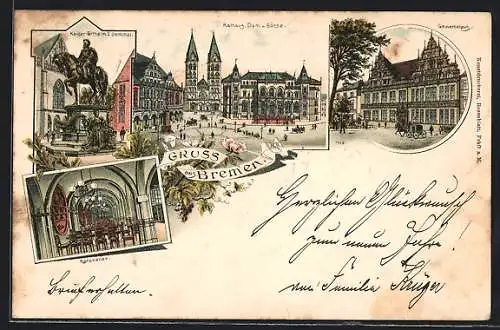 Kaiser Wilhelm I Denkmal.
Rathaus, Dom u. Börse.
Gewerbehaus.
GRUSS
aus Bremen.
Ratskeller.
Kunstdruckerei, Rosenblatt, Frkft a. M.
Herzlichen Glückwunsch
zum neuen Jahre!
von Familie Krüger
Brief erhalten.